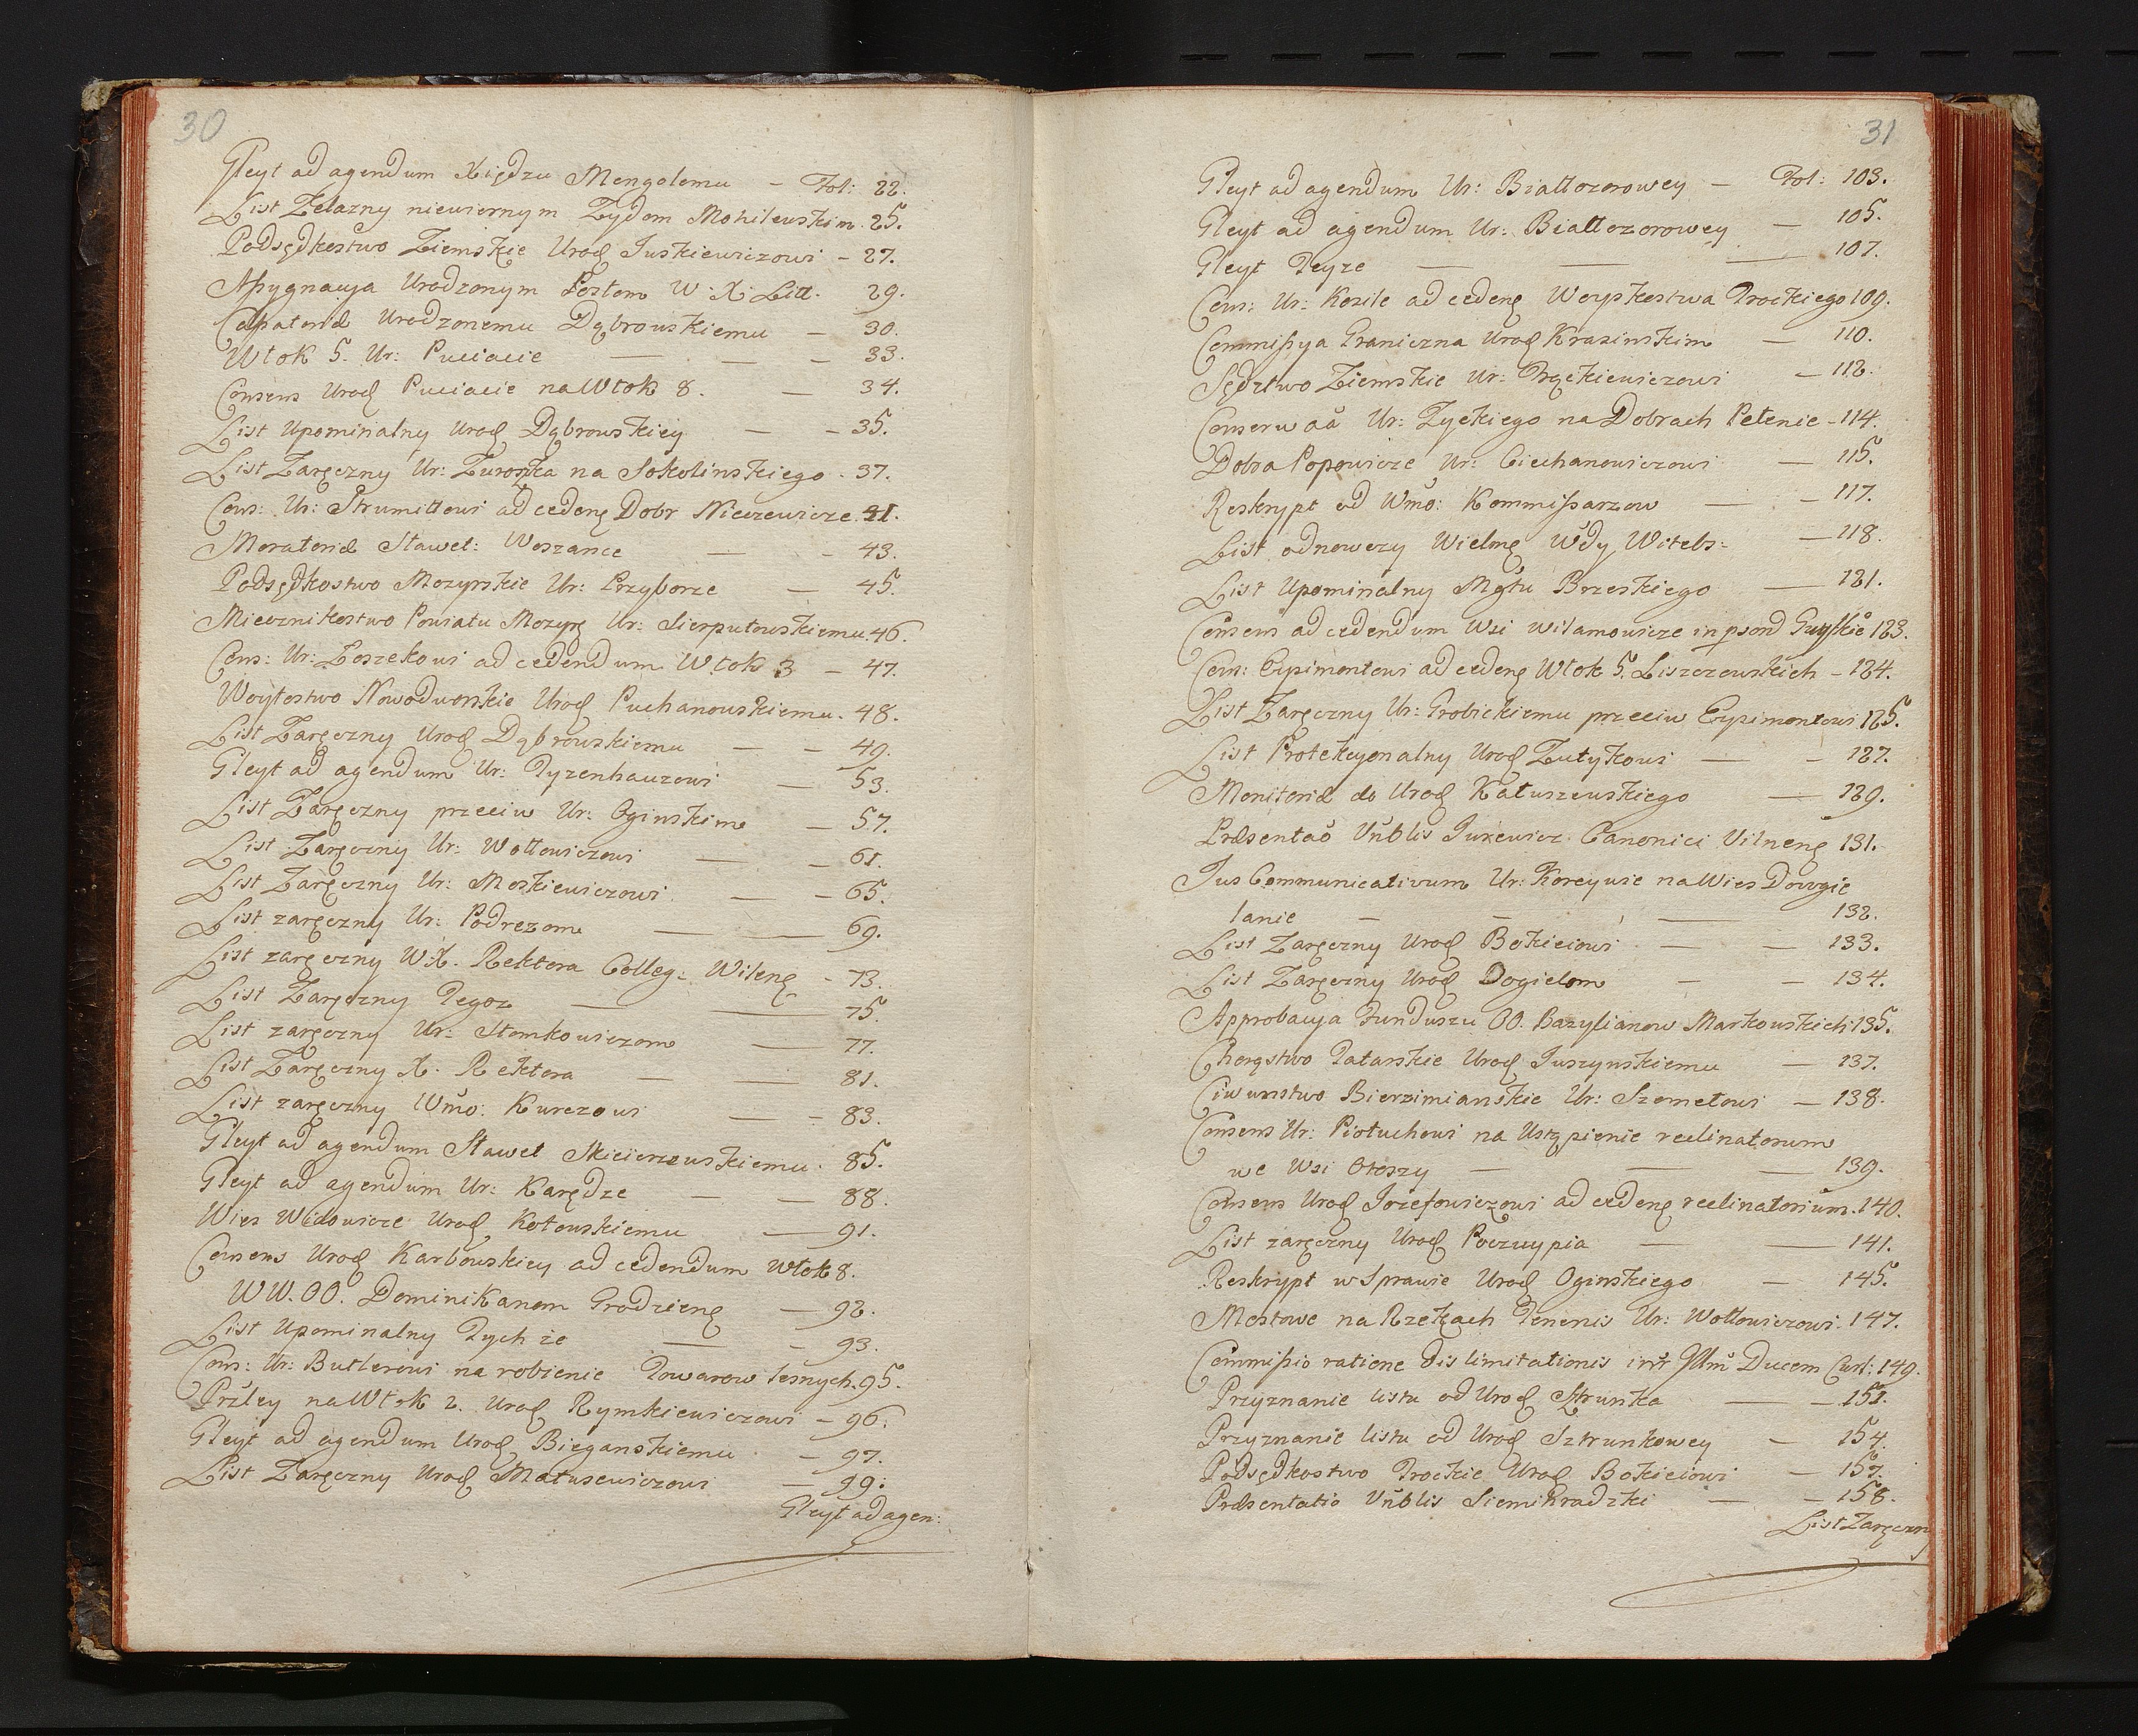 30
Gleyt ad agendum Xiędzu Mengolemu - Fol: 22.
List Żelazny niewiernym Żydom Mohilewskim. 25.
Podsędkostwo Ziemskie Urod Juskiewiczowi - 27.
Assygnacya Urodzonym Posłom W: X: Litt. 29.
Urodzonemu Dąbrowskiemu — 30.
Włok 5. Ur: Puciacie — — - 33.
Consens Urod Puciacie na Włok 8. — 34.
List Upominalny Urod Dąbrowskiey — - 35.
List Zaręczny Ur: Zuropka na Sokolinskiego - 37.
Cons: Ur: Strumiłłowi ad cedeng Dobr Nieczewicze. 41.
Moratorid Sławet: Woszance — - 43.
Podsędkostwo Mozyrskie Ur: Przyborze — 45.
Miecznikostwo Powiatu Mozyrg Ur: Sierputowskiemu. 46.
Cons: Ur: Leszekowi ad cedendum Włok 3 — 47.
Woytostwo Nowodworskie Urod Puchanowskiemu. 48.
List Zaręczny Urod Dąbrowskiemu — - 49.
Gleyt ad agendum Ur: Tyzenhauzowi — 53.
List Zaręczny przeciw Ur: Oginskim — 57.
List Zaręczny Ur: Wołłowiczowi — - 61.
List Zaręczny Ur: Moskiewiczowi. — - 65.
List zaręczny Ur: Podrezom — — 69.
List zaręczny W.X. Rektora Colleg: Wileng - 73.
List Zaręczny Tegoz — — 75.
List zaręczny Ur: Słomkowiczom — 77.
List Zaręczny X. Rektora — — 81.
List zaręczny Wmo: Kurczowi — - 83.
Gleyt ad agendum Sławet Skicierzewskiemu. 85.
Gleyt ad agendum Ur: Karędze — — 88.
Wies Widowicze Urod Kotowskiemu — 91.
Consens Urod Karbowskiey ad cedendum Włok 8.
WW. OO. Dominikanom Grodzieng — 92.
List Upominalny Tych że — - 93.
Cons: Ur: Butlerowi na robienie Towarow lesnych. 95.
Przley na Włok 2. Urod Rymkiewiczowi - 96.
Gleyt ad agendum Urod Bieganskiemu - 97.
List Zaręczny Urod Matusewiczowi — 99.
Gleyt ad agen:
31
Gleyt ad agendum Ur: Białłozorowey — Fol: 103.
Gleyt ad agendum Ur: Białłozorowey — 105.
Gleyt Teyze — — — 107.
Cons: Ur: Kozile ad cedeng Woyskostwa Trockiego 109.
Commissya Graniczna Urod Krasinskim — 110.
Sędztwo Ziemskie Ur: — 112.
Ur: Zyckiego na Dobrach Pelenie - 114.
Dobra Popowicze Ur: Ciechanowiczowi — 115.
Reskrypt od Wmo: Kommissarzow — - 117.
List odnowczy Wielmg Wdy Witebs: — 118.
List Upominalny Mgtu Brzeskiego — 121.
Consens ad cedendum Wsi Wilamowicze in 123.
Cons: Eysimontowi ad cedeng Włok 5. Liszczewskich - 124.
List Zaręczny Ur: Grobickiemu przeciw Eysimontowi 125.
List Protekcyonalny Urod Zutykowi — - 127.
Monitorid do Urod Kałuszewskiego — 129.
Præsentao Vnblis Jurewicz Canonici Vilneng 131.
Jus Communicativum Ur: Koreywie na Wies Dowgie
lanie — — — 132.
List Zaręczny Urod Bokiciowi — — 133.
List Zaręczny Urod Dogielom — — 134.
Approbacya Funduszu OO. Bazylianow Markowskich 135.
Chorąstwo Tatarskie Urod Juszynskiemu — 137.
Ciwunstwo Bierzimianskie Ur: Szemetowi — 138.
Consens Ur: Piotuchowi na Ustąpienie reclinatorum
we Wsi Oteszy — — — 139.
Consens Urod Jozefowiczowi ad cedeng reclinatorium. 140.
List zaręczny Urod Poczuypia — — 141.
Reskrypt w Sprawie Urod Oginskiego — 145.
Mostowe na Rzekach Ur: Wołłowiczowi. 147.
Commissio ratione dislimitationis intr Illm Ducem Curl: 149.
Przyznanie listu od Urod Sztrunka — - 151.
Przyznanie listu od Urod Sztrunkowey — 154.
Podsędkostwo Trockie Urod Bokiciowi — 157.
Præsentatio Vnblis Siemihradzki — - 158.
List Zaręczn